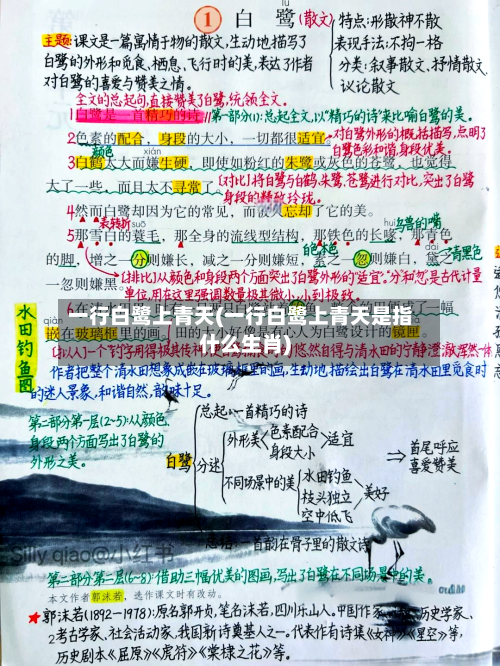 1 白鹭(散文)
lù
特点:形散神不散
表现手法:不拘一格
分类:叙事散文、抒情散文、
议论散文
主题:课文是一篇寓情于物的散文,生动地描写了
白鹭的外形和觅食、栖息、飞行时的美,表达了作者
对白鹭的喜爱与赞美之情。
全文的总起句,直接赞美了白鹭,统领全文。
1白鹭是一首精巧的诗。//第一部分(1):总起全文,以“精巧的诗”来比喻白鹭的美。
2色素的配合,身段的大小,一切都很适宜。
对白鹭外形的概括描写,点明了
白鹭色彩和谐,身段优美。
颜色
xián
3白鹤太大而嫌生硬,即使如粉红的朱鹭或灰色的苍鹭,也觉得
太大了一些,而且太不寻常了。
[对比]将白鹭与白鹤、朱鹭、苍鹭进行对比,突出了白鹭
身段的精致玲珑。
4然而白鹭却因为它的常见,而被人忘却了它的美。
表转折
suō
huì
鸟兽的嘴
5那雪白的蓑毛,那全身的流线型结构,那铁色的长喙,那青色
白本色
dài
青黑色
的脚,增之一分则嫌长,减之一分则嫌短,素之一忽则嫌白,黛之
一忽则嫌黑。
[排比]从颜色和身段两个方面突出了白鹭外形的“适宜”。“分”和“忽”是古代计量
单位,用在这里强调数量极其微小,小到极致。
一行白鹭上青天(一行白鹭上青天是指
什么生肖)
水田钓鱼图
qiàn
嵌在玻璃框里的画
有心人为白鹭设计的镜匣
作者把整个清水田想象成嵌在玻璃框里的画,生动地描绘出白鹭在清水田里觅食时
的迷人景象,和谐自然,韵味十足。
第二部分第一层(2~5):从颜色、
身段两个方面写出了白鹭的
外形之美。
白鹭
总起:一首精巧的诗
分述
外形美
色素配合
身段大小
适宜
不同场景中的美
水田钓鱼
枝头独立
空中低飞
美好
总结:一首韵在骨子里的散文诗
⇒ 首尾呼应
喜爱赞美
Silly qiao@小红书
第二部分第二层(6~8):借助三幅优美的图画,写出了白鹭在不同场景中的美。
本文作者郭沫若,选作课文时有改动。
★郭沫若(1892—1978):原名郭开贞,笔名沫若,四川乐山人。中国作家、诗人、历史学家、
考古学家、社会活动家,我国新诗奠基人之一。代表作有诗集《女神》《星空》等,
2
历史剧本《屈原》《虎符》《棠棣之花》等。